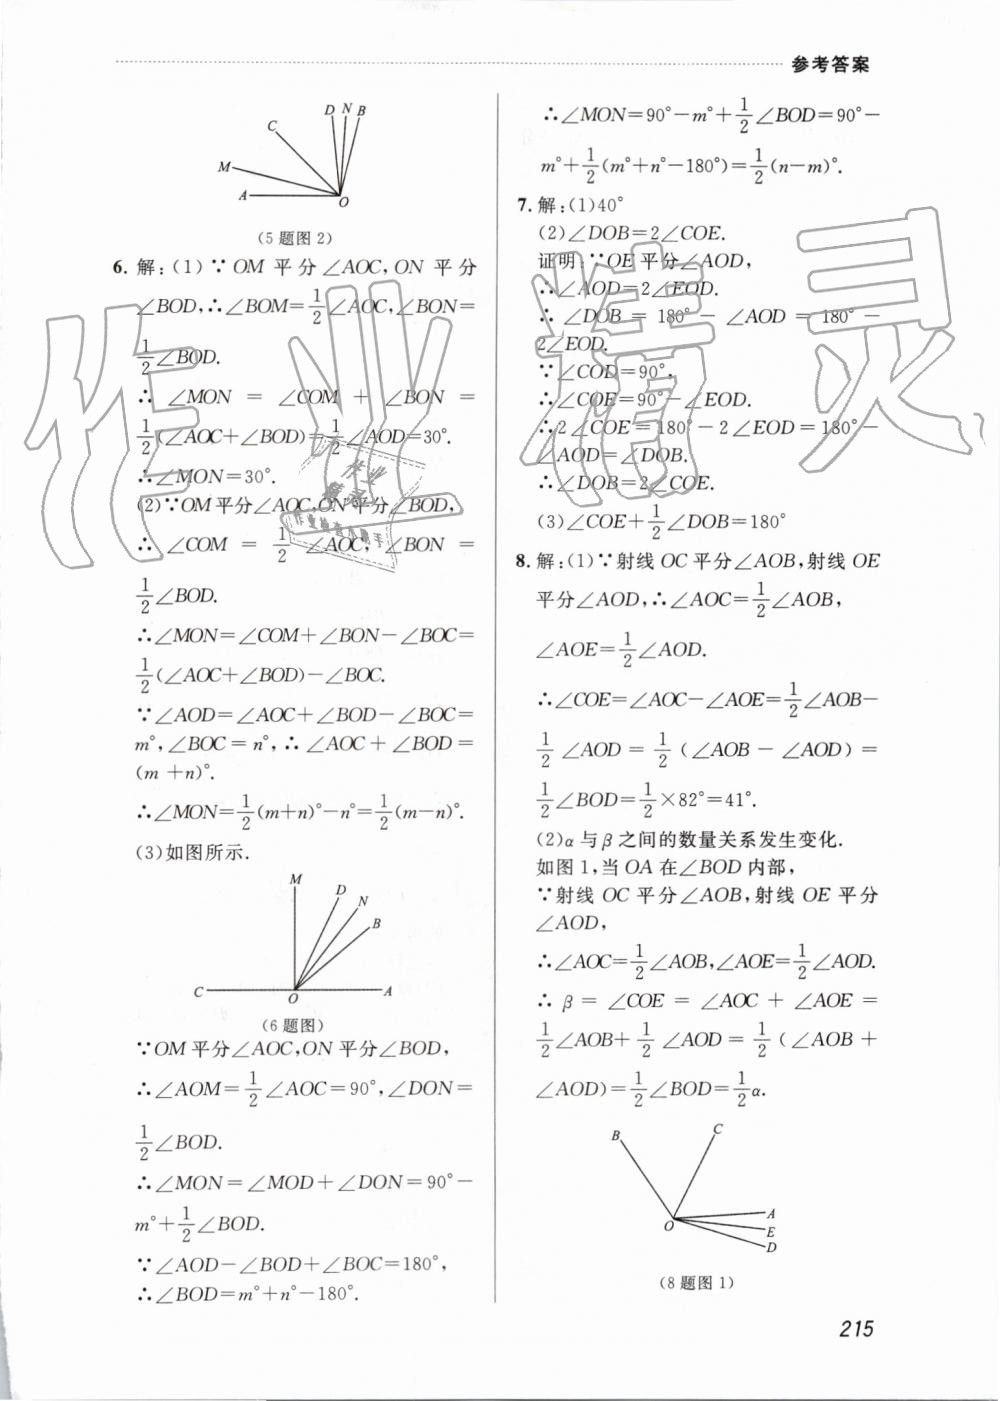 参考答案
D N B
C
M
A
O
(5题图2)
6. 解:(1)∵OM 平分∠AOC,ON 平分
∠BOD,∴∠BOM=1/2∠AOC,∠BON=
1/2∠BOD.
∴ ∠MON = ∠COM + ∠BON =
1/2(∠AOC+∠BOD)=1/2∠AOD=30°.
∴∠MON=30°.
(2)∵OM平分∠AOC,ON平分∠BOD,
∴ ∠COM = 1/2 ∠AOC, ∠BON =
1/2∠BOD.
∴∠MON=∠COM+∠BON-∠BOC=
1/2(∠AOC+∠BOD)-∠BOC.
∵∠AOD=∠AOC+∠BOD-∠BOC=
m°,∠BOC=n°,∴∠AOC+∠BOD=
(m+n)°.
∴∠MON=1/2(m+n)°-n°=1/2(m-n)°.
(3)如图所示.
M
D
N
B
C
O
A
(6题图)
∵OM平分∠AOC,ON平分∠BOD,
∴∠AOM=1/2∠AOC=90°,∠DON=
1/2∠BOD.
∴∠MON=∠MOD+∠DON=90°-
m°+1/2∠BOD.
∵∠AOD-∠BOD+∠BOC=180°,
∴∠BOD=m°+n°-180°.
∴∠MON=90°-m°+1/2∠BOD=90°-
m°+1/2(m°+n°-180°)=1/2(n-m)°.
7. 解:(1)40°
(2)∠DOB=2∠COE.
证明:∵OE平分∠AOD,
∴∠AOD=2∠EOD.
∴ ∠DOB = 180° - ∠AOD = 180° -
2∠EOD.
∵∠COD=90°,
∴∠COE=90°-∠EOD.
∴2∠COE=180°-2∠EOD=180°-
∠AOD=∠DOB.
∴∠DOB=2∠COE.
(3)∠COE+1/2∠DOB=180°
8. 解:(1)∵射线OC平分∠AOB,射线OE
平分∠AOD,∴∠AOC=1/2∠AOB,
∠AOE=1/2∠AOD.
∴∠COE=∠AOC-∠AOE=1/2∠AOB-
1/2∠AOD = 1/2(∠AOB - ∠AOD) =
1/2∠BOD=1/2×82°=41°.
(2)α与β之间的数量关系发生变化.
如图1,当OA在∠BOD内部,
∵射线 OC 平分∠AOB,射线 OE 平分
∠AOD,
∴∠AOC=1/2∠AOB,∠AOE=1/2∠AOD.
∴ β = ∠COE = ∠AOC + ∠AOE =
1/2∠AOB+1/2∠AOD = 1/2(∠AOB +
∠AOD)=1/2∠BOD=1/2α.
B
C
O
A
E
D
(8题图1)
215
作业精灵
作业
精灵